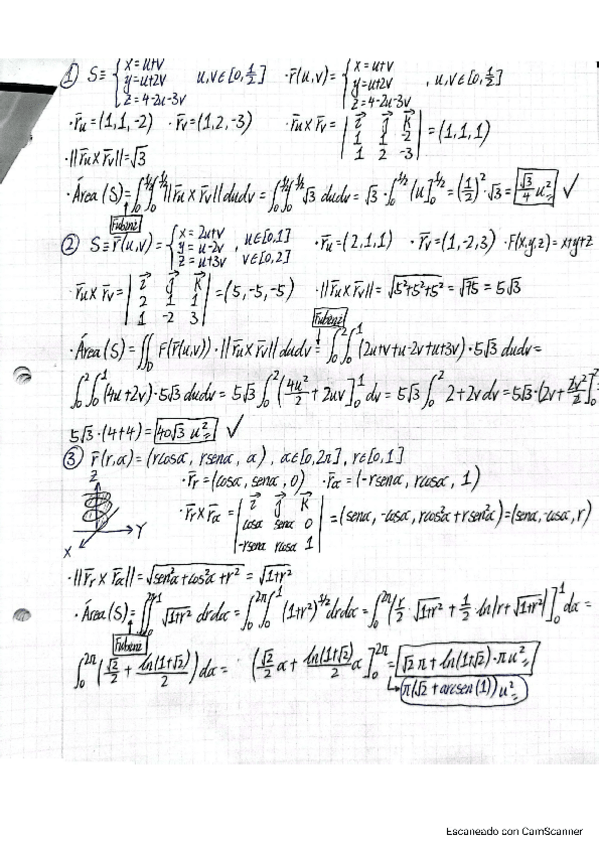 ① S≡ { x=u+v y=u+2v z=4-2u-3v u,v∈[0,1/2] · r̄(u,v)= { x=u+v y=u+2v z=4-2u-3v , u,v∈[0,1/2]
· r̄u=(1,1,-2) · r̄v=(1,2,-3) · r̄u x r̄v = | i⃗ j⃗ k⃗ 1 1 -2 1 2 -3 | = (1,1,1)
· ||r̄u x r̄v||=√3
· Área (S) = ∫₀^1/2 ∫₀^1/2 ||r̄u x r̄v|| dudv = ∫₀^1/2 ∫₀^1/2 √3 dudv = √3 · ∫₀^1/2 (u]₀^1/2 = (1/2)² · √3 = √3/4 u² ✓
Fubini
② S≡ r̄(u,v)= { x=2u+v y=u-2v z=u+3v , u∈[0,1] v∈[0,2] · r̄u=(2,1,1) · r̄v=(1,-2,3) · F(x,y,z)=x+y+z
· r̄u x r̄v = | i⃗ j⃗ k⃗ 2 1 1 1 -2 3 | = (5,-5,-5) · ||r̄u x r̄v|| = √5²+5²+5² = √75 = 5√3
Fubini
· Área (S) = ∬_D F(r̄(u,v)) · ||r̄u x r̄v|| dudv = ∫₀² ∫₀¹ (2u+v+u-2v+u+3v) · 5√3 dudv =
∫₀² ∫₀¹ (4u+2v) · 5√3 dudv = 5√3 ∫₀² (4u²/2 + 2uv]₀¹ dv = 5√3 ∫₀² 2+2v dv = 5√3 · (2v + 2v²/2]₀²
5√3 · (4+4) = 40√3 u² ✓
③ r̄(r,α) = (rcosα, rsenα, α) , α∈[0,2π], r∈[0,1]
Z Y X · r̄r = (cosα, senα, 0) · r̄α = (-rsenα, rcosα, 1)
· r̄r x r̄α = | i⃗ j⃗ k⃗ cosα senα 0 -rsenα rcosα 1 | = (senα, -cosα, rcos²α+rsen²α) = (senα, -cosα, r)
· ||r̄r x r̄α|| = √sen²α+cos²α+r² = √1+r²
· Área (S) = ∫₀^2π ∫₀¹ √1+r² drdα = ∫₀^2π ∫₀¹ (1+r²)^1/2 drdα = ∫₀^2π (r/2 · √1+r² + 1/2 · ln|r+√1+r²|]₀¹ dα =
Fubini
∫₀^2π (√2/2 + ln(1+√2)/2) dα = (√2/2 α + ln(1+√2)/2 α]₀^2π = √2 π + ln(1+√2) · π u²
↳ π(√2 + arcsen(1)) u²
Escaneado con CamScanner